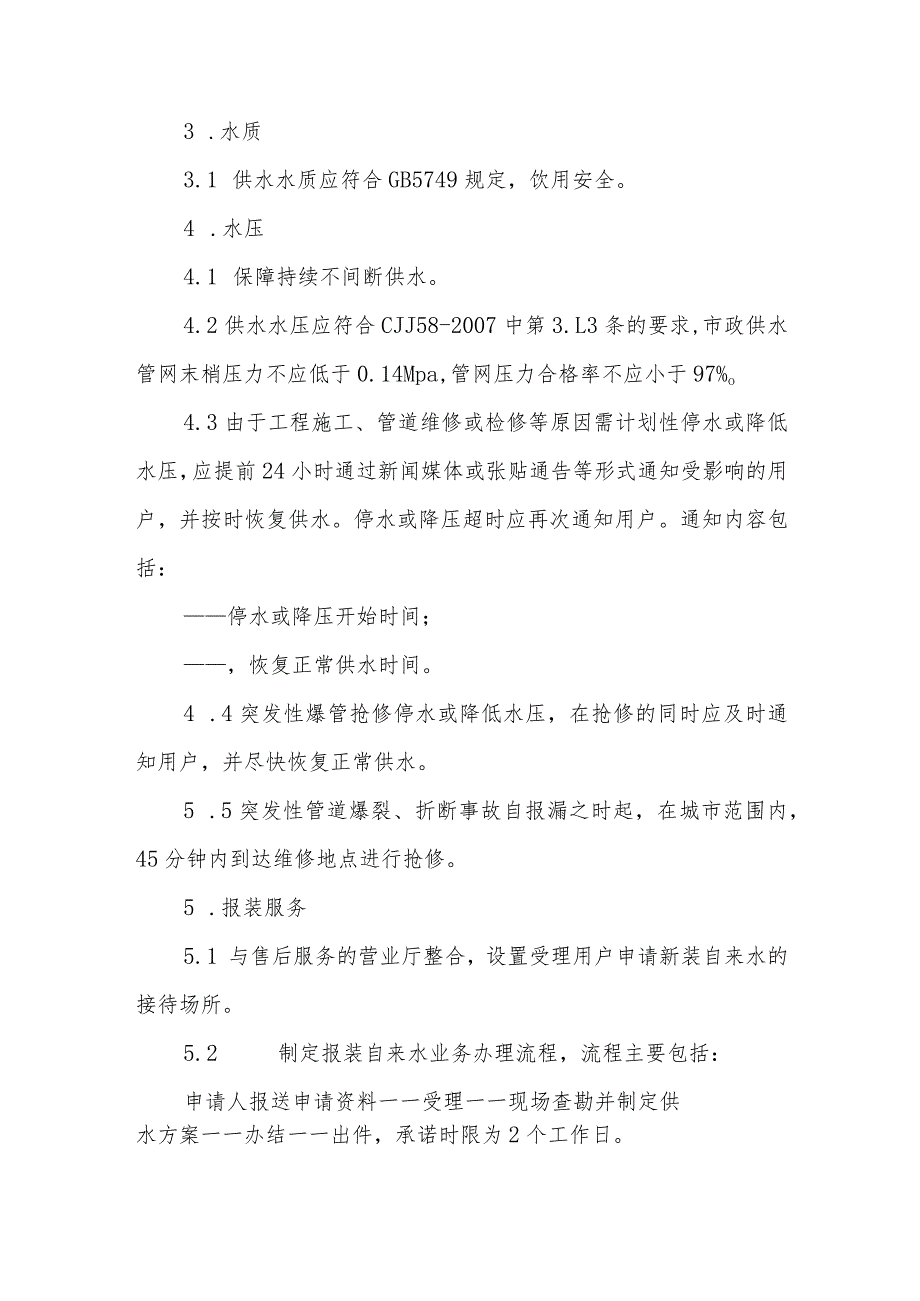 3 .水质
3.1 供水水质应符合GB5749规定，饮用安全。
4 .水压
4.1 保障持续不间断供水。
4.2供水水压应符合CJJ58-2007中第3.L3条的要求,市政供水
管网末梢压力不应低于0.14Mpa,管网压力合格率不应小于97%。
4.3由于工程施工、管道维修或检修等原因需计划性停水或降低
水压,应提前24小时通过新闻媒体或张贴通告等形式通知受影响的用
户，并按时恢复供水。停水或降压超时应再次通知用户。通知内容包
括：
——停水或降压开始时间；
——，恢复正常供水时间。
4 .4突发性爆管抢修停水或降低水压，在抢修的同时应及时通
知用户，并尽快恢复正常供水。
5 .5突发性管道爆裂、折断事故自报漏之时起，在城市范围内，
45分钟内到达维修地点进行抢修。
5 .报装服务
5.1 与售后服务的营业厅整合，设置受理用户申请新装自来水的
接待场所。
5.2 制定报装自来水业务办理流程，流程主要包括：
申请人报送申请资料一一受理一一现场查勘并制定供
水方案一一办结一一出件，承诺时限为2个工作日。